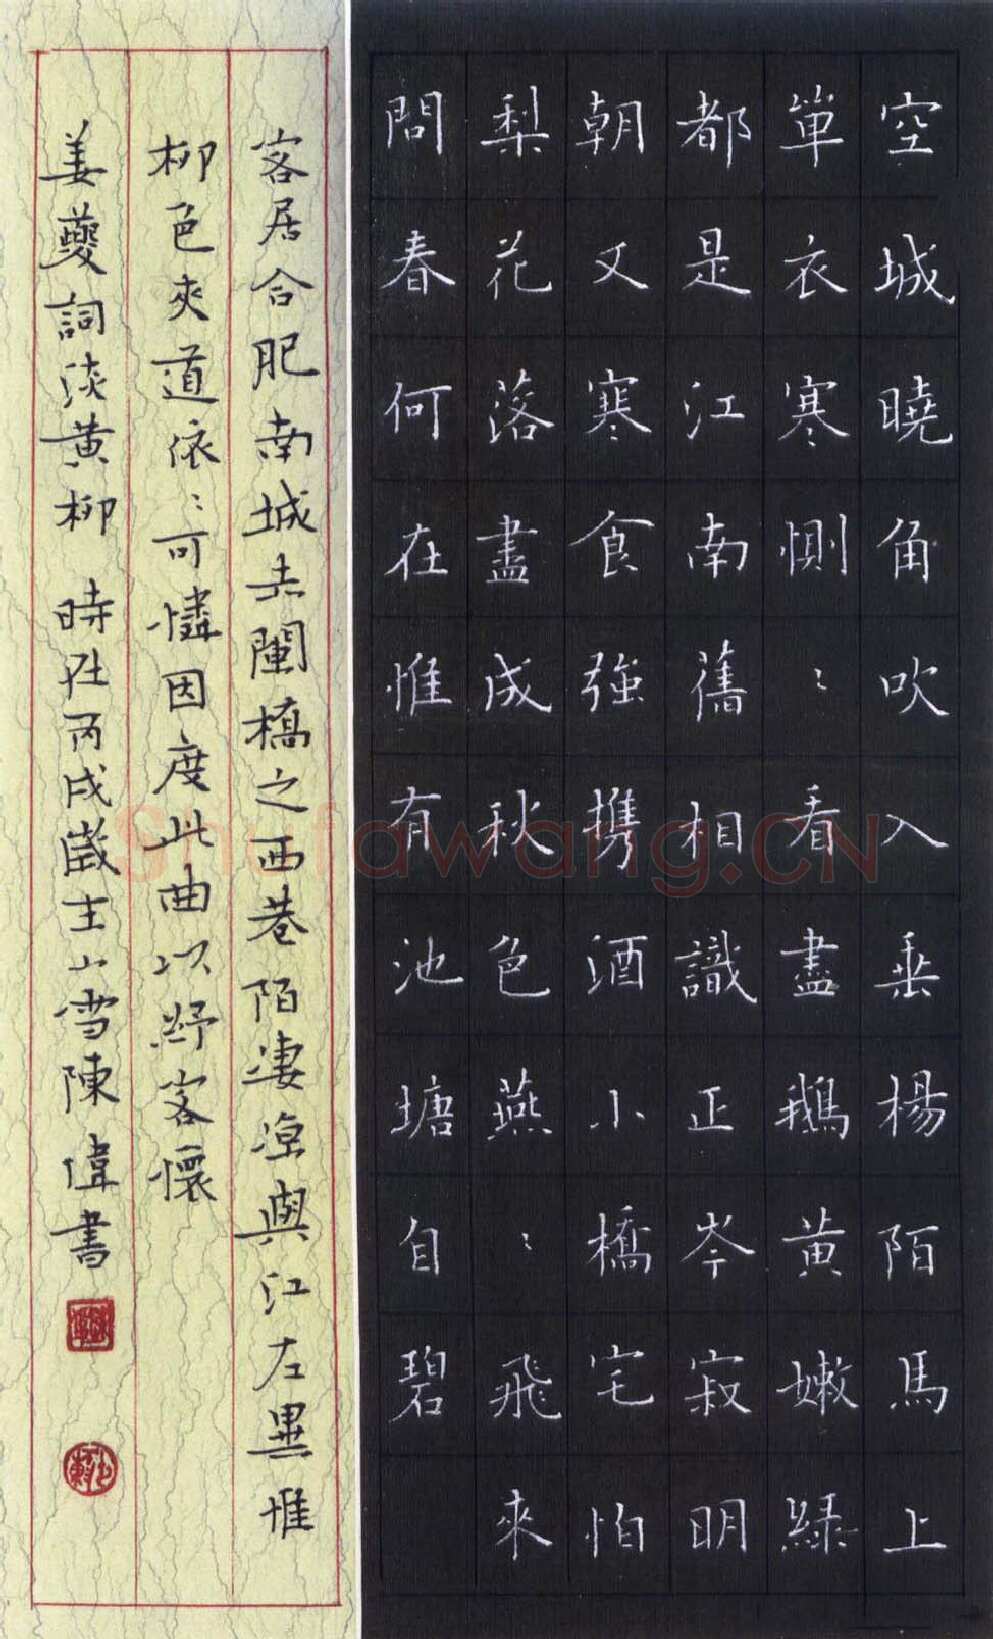 空城曉角吹入垂楊陌馬上
單衣寒惻〻看盡鵝黃嫩綠
都是江南舊相識正岑寂明
朝又寒食強携酒小橋宅怕
梨花落盡成秋色燕〻飛來
問春何在惟有池塘自碧
客居合肥南城赤闌橋之西巷陌凄涼與江左異惟
柳色夾道依〻可憐因度此曲以紓客懷
姜夔詞淡黃柳 時在丙戌歲小雪陳偉書
Shufawang.CN